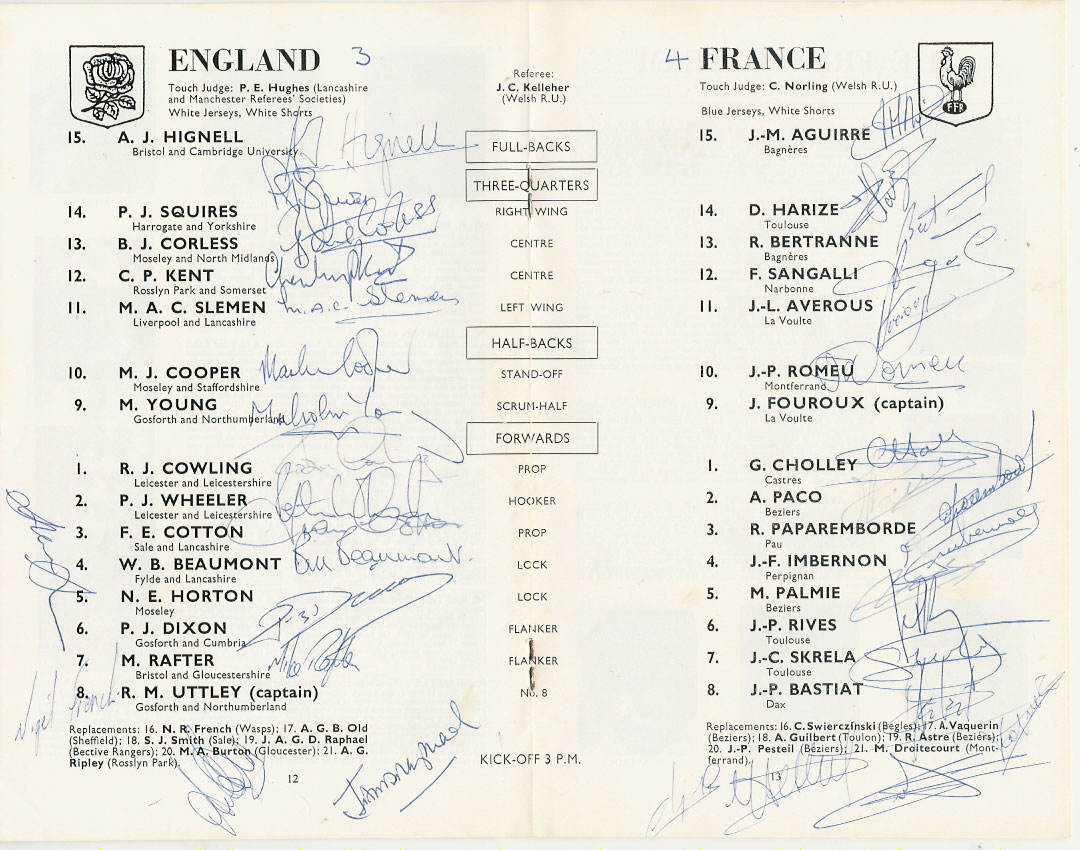 ENGLAND 3
Touch Judge: P. E. Hughes (Lancashire
and Manchester Referees' Societies)
White Jerseys, White Shorts
15. A. J. HIGNELL
Bristol and Cambridge University
Hignell
14. P. J. SQUIRES
Harrogate and Yorkshire
13. B. J. CORLESS
Moseley and North Midlands
12. C. P. KENT
Rosslyn Park and Somerset
11. M. A. C. SLEMEN
Liverpool and Lancashire
M. A. C. Slemen
10. M. J. COOPER
Moseley and Staffordshire
9. M. YOUNG
Gosforth and Northumberland
Malcolm Young
1. R. J. COWLING
Leicester and Leicestershire
2. P. J. WHEELER
Leicester and Leicestershire
3. F. E. COTTON
Sale and Lancashire
4. W. B. BEAUMONT
Fylde and Lancashire
Bill Beaumont.
5. N. E. HORTON
Moseley
6. P. J. DIXON
Gosforth and Cumbria
7. M. RAFTER
Bristol and Gloucestershire
Mike Rafter
8. R. M. UTTLEY (captain)
Gosforth and Northumberland
Nigel French
Replacements: 16. N. R. French (Wasps); 17. A. G. B. Old
(Sheffield); 18. S. J. Smith (Sale); 19. J. A. G. D. Raphael
(Bective Rangers); 20. M. A. Burton (Gloucester); 21. A. G.
Ripley (Rosslyn Park).
12
Referee:
J. C. Kelleher
(Welsh R.U.)
FULL-BACKS
THREE-QUARTERS
RIGHT WING
CENTRE
CENTRE
LEFT WING
HALF-BACKS
STAND-OFF
SCRUM-HALF
FORWARDS
PROP
HOOKER
PROP
LOCK
LOCK
FLANKER
FLANKER
No. 8
KICK-OFF 3 P.M.
4 FRANCE
FFR
Touch Judge: C. Norling (Welsh R.U.)
Blue Jerseys, White Shorts
15. J.-M. AGUIRRE
Bagnères
14. D. HARIZE
Toulouse
13. R. BERTRANNE
Bagnères
12. F. SANGALLI
Narbonne
11. J.-L. AVEROUS
La Voulte
10. J.-P. ROMEU
Montferrand
Romeu
9. J. FOUROUX (captain)
La Voulte
1. G. CHOLLEY
Castres
2. A. PACO
Beziers
3. R. PAPAREMBORDE
Pau
4. J.-F. IMBERNON
Perpignan
5. M. PALMIE
Beziers
6. J.-P. RIVES
Toulouse
7. J.-C. SKRELA
Toulouse
8. J.-P. BASTIAT
Dax
Replacements: 16. C. Swierczinski (Begles); 17. A. Vaquerin
(Beziers); 18. A. Guilbert (Toulon); 19. R. Astre (Beziers);
20. J.-P. Pesteil (Béziers); 21. M. Droitecourt (Mont-
ferrand).
13